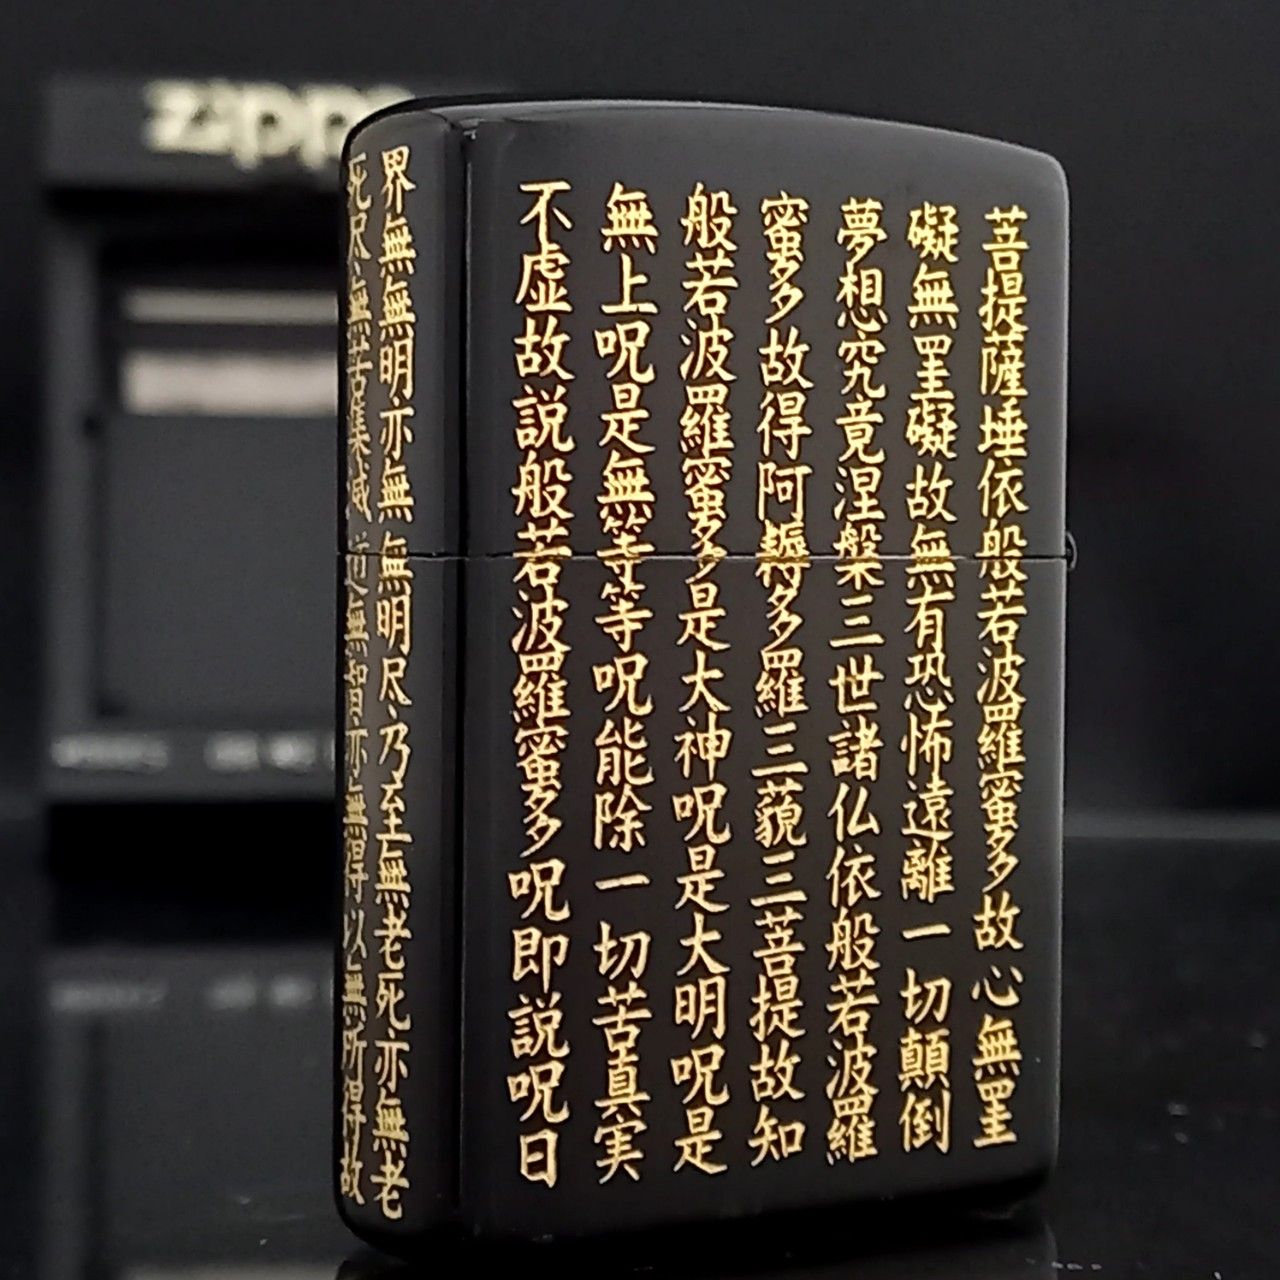 菩提薩埵依般若波羅蜜多故心無罣
礙無罣礙故無有恐怖遠離一切顛倒
夢想究竟涅槃三世諸仏依般若波羅
蜜多故得阿耨多羅三藐三菩提故知
般若波羅蜜多是大神呪是大明呪是
無上呪是無等等呪能除一切苦真実
不虚故説般若波羅蜜多呪即説呪曰
界無無明亦無無明尽乃至無老死亦無老
死尽無苦集滅道無智亦無得以無所得故
zippo